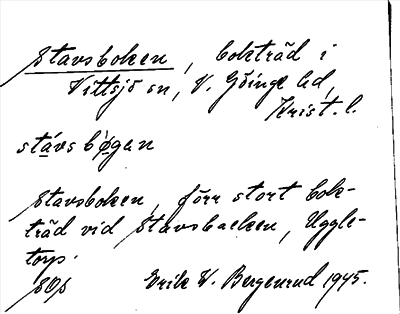 Stavsboken, bokträd i
Vittsjö sn, V. Göinge hd,
Krist. l.
stávsbø̀gan
Stavsboken, förr stort bok-
träd vid Stavsbacken, Uggle-
torp.
SOS Erik W. Bergenrud 1945.